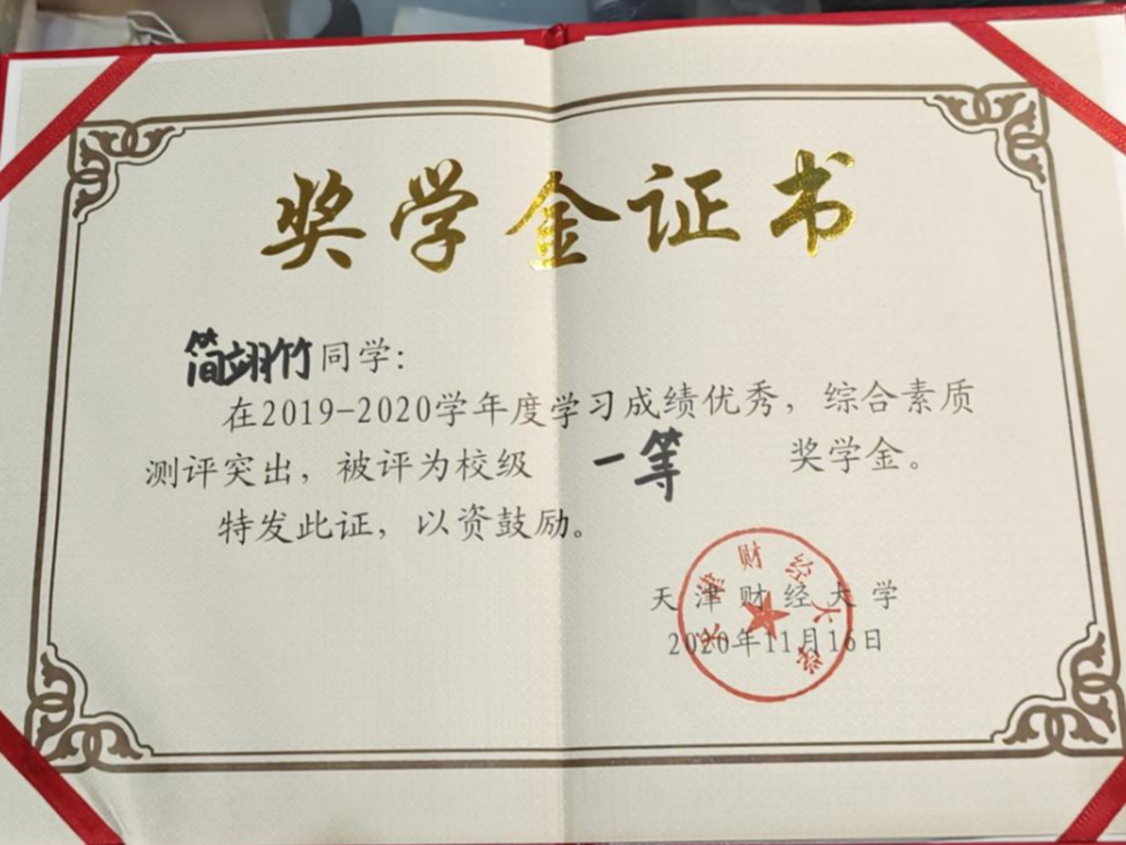 奖学金证书
简翊竹同学：
在2019-2020学年度学习成绩优秀，综合素质
测评突出，被评为校级 一等 奖学金。
特发此证，以资鼓励。
天津财经大学
2020年11月16日
天津财经大学